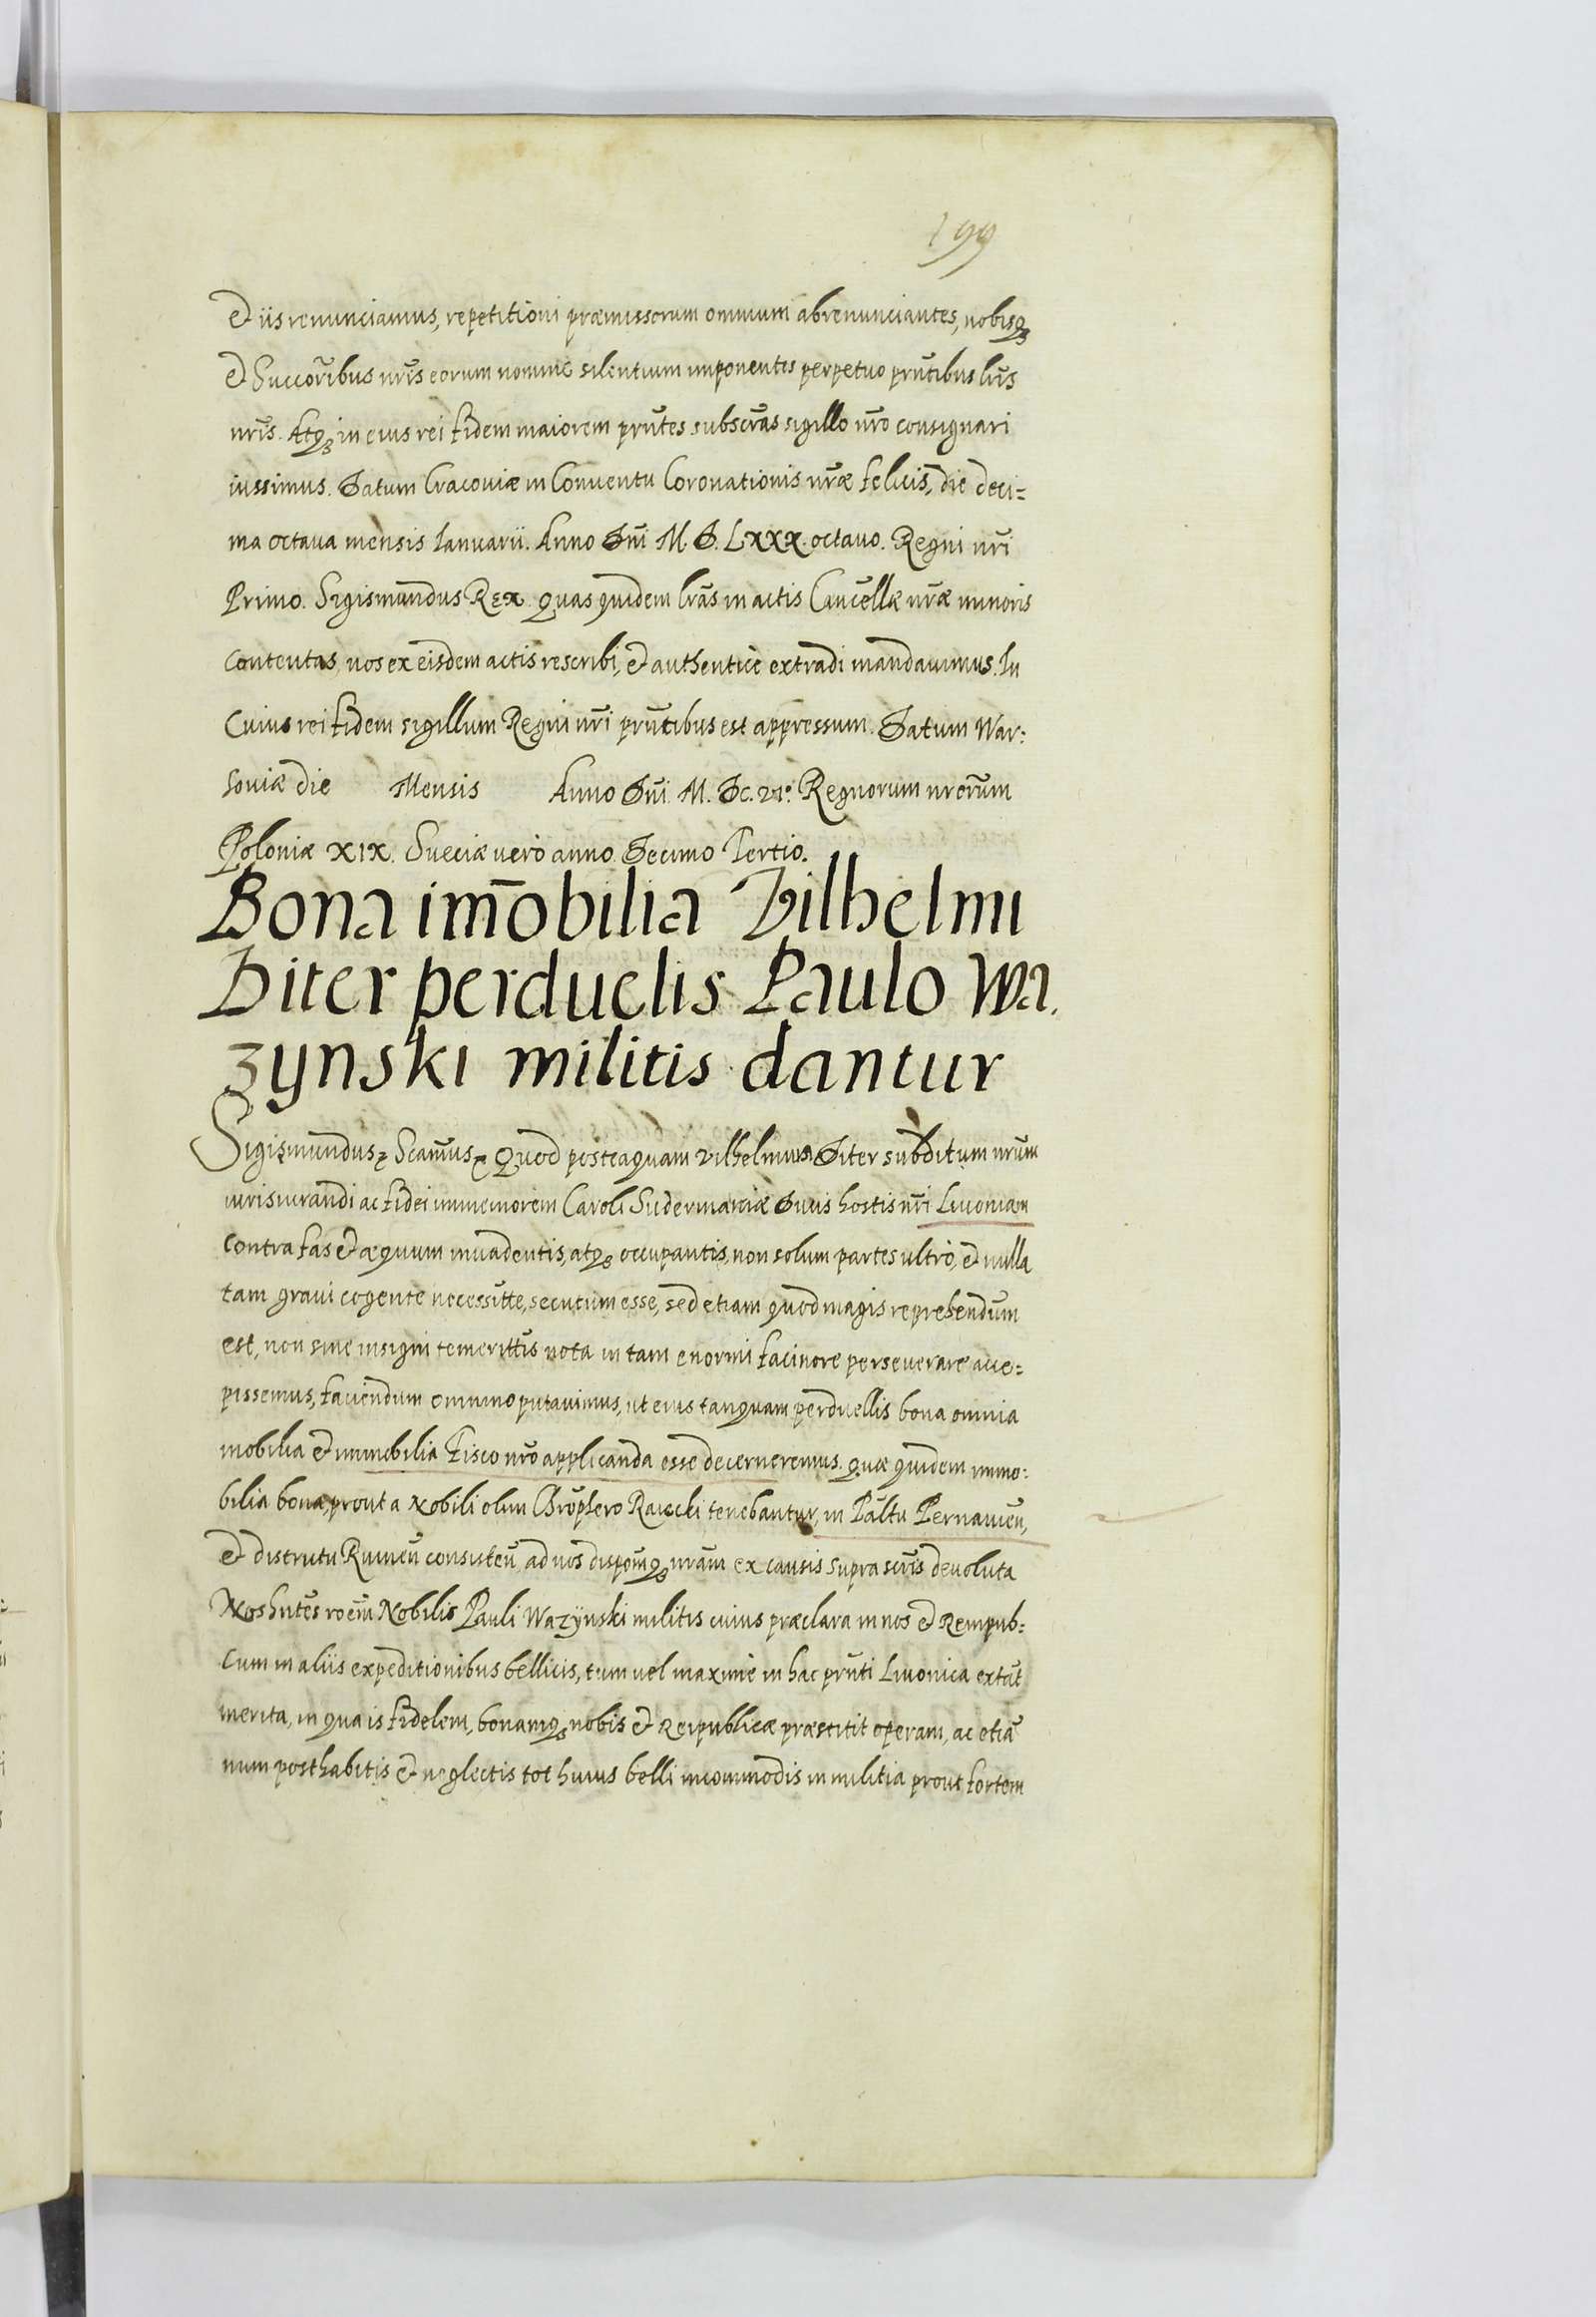 199
et iis renunciamus, repetitioni præmissorum omnium abrenunciantes, nobisq3
et Succor̃ibus nr̃is eorum nomine silentium imponentes perpetuo prñtibus lr̃is
nr̃is. Atq3 in eius rei fidem maiorem prñtes subscr̃as sigillo nr̃o consignari
iussimus. Datum Cracoviæ in Conventu Coronationis nr̃æ felicis, die deci=
ma octava mensis Ianuarii. Anno Dñi M. D. LXXX. octavo. Regni nr̃i
Primo. Sigismundus Rex. Quas quidem lr̃as in actis Cancellæ nr̃æ minoris
contentas, nos ex eisdem actis rescribi, et authentice extradi mandavimus. In
Cuius rei fidem sigillum Regni nr̃i prñtibus est appressum. Datum War:
soviæ die Mensis Anno Dñi M. Dc. VI°. Regnorum nrorũm
Poloniæ XIX. Sveciæ vero anno Decimo Tertio.
Bona im̃obilia Vilhelmi
Diter perduelis Paulo Wa.
zynski militis dantur
Sigismundus Scam̃us Quod posteaquam Vilhelmum Diter subditum nrũm
iurisiurandi ac fidei immemorem Caroli Sudermaniæ Ducis hostis nr̃i Livoniam
contra fas et æquum invadentis, atq3 occupantis, non solum partes ultrò, et nulla
tam gravi cogente necessit̃te, secutum esse, sed etiam quod magis reprehendũm
est, non sine insigni temerit̃tis nota in tam enormi facinore perseverare acce=
pissemus, faciendum omnino putavimus, ut eius tanquam perduellis bona omnia
mobilia et immobilia Fisco nr̃o applicanda esse decerneremus. Quæ quidem immo:
bilia bona, prout a Nobili olim Chrõphero Raiecki tenebantur, in Pãltu Pernavieñ,
et districtu Ruineñ consisteñ, ad nos dispom̃q3 nrãm ex causis supra scr̃is devoluta
Nos hñtes roem̃ Nobilis Pauli Wazÿnski militis cuius præclara in nos et Rempub=
Cum in aliis expeditionibus bellicis, tum vel maxime in hac prñti Livonica extãt
merita, in qua is fidelem, bonamq3 nobis et Reipublicæ præstitit operam, ac etiã
num posthabitis et neglectis tot huius belli incommodis in militia prout fortem